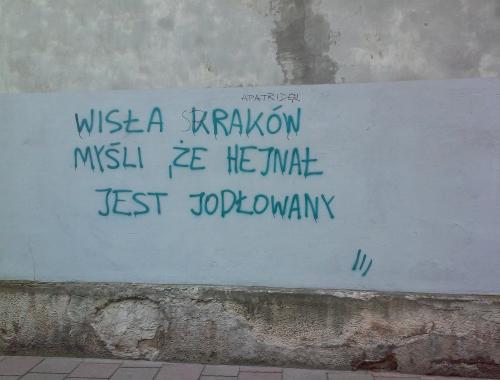 APATRIDEN
WISŁA KRAKÓW
MYŚLI, ŻE HEJNAŁ
JEST JODŁOWANY